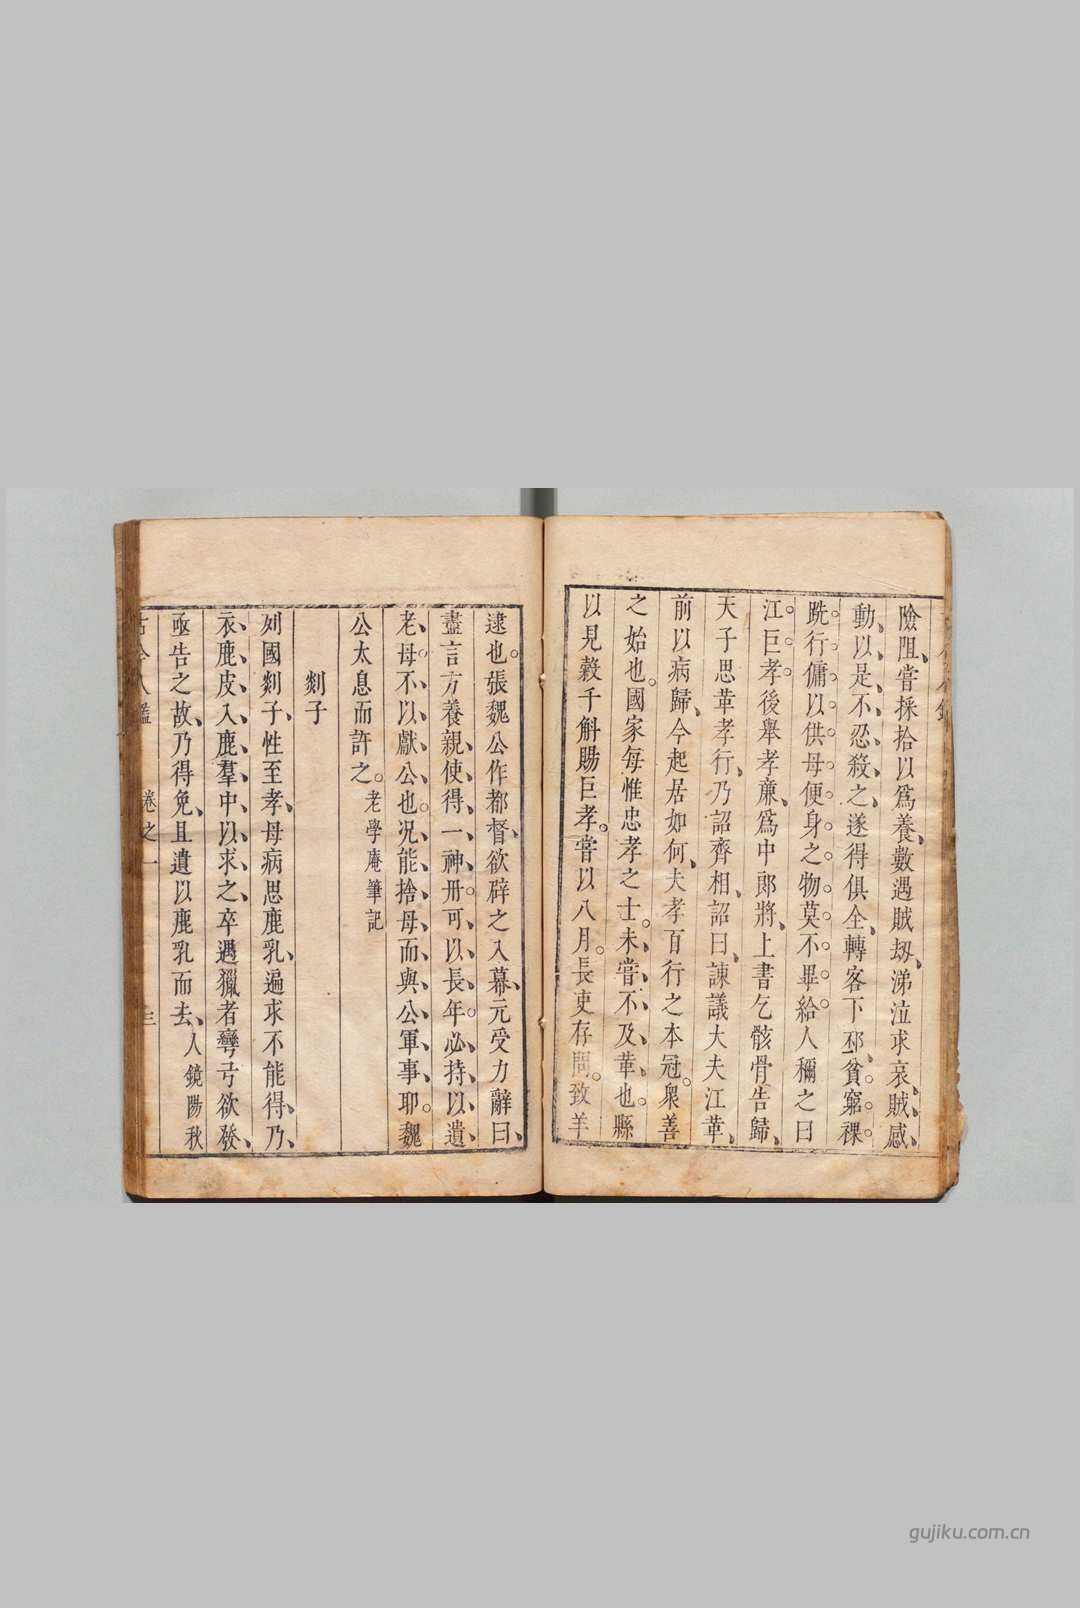 險阻嘗採拾以爲養數遇賊刼涕泣求哀賊感
動以是不忍殺之遂得俱全轉客下邳貧窮裸
跣行傭以供母便身之物莫不畢給人稱之曰
江巨孝後舉孝廉爲中郎將上書乞骸骨告歸
天子思革孝行乃詔齊相詔曰諫議大夫江革
前以病歸今起居如何夫孝百行之本冠衆善
之始也國家每惟忠孝之士未嘗不及革也縣
以見穀千斛賜巨孝嘗以八月長吏存問致羊
逮也張魏公作都督欲辟之入幕元受力辭曰
盡言方養親使得一神丹可以長年必持以遺
老母不以獻公也况能捨母而與公軍事耶魏
公太息而許之老學庵筆記
剡子
列國剡子性至孝母病思鹿乳遍求不能得乃
衣鹿皮入鹿羣中以求之卒遇獵者彎弓欲發
亟告之故乃得免且遺以鹿乳而去人鏡陽秋
卷之一 三
gujiku.com.cn